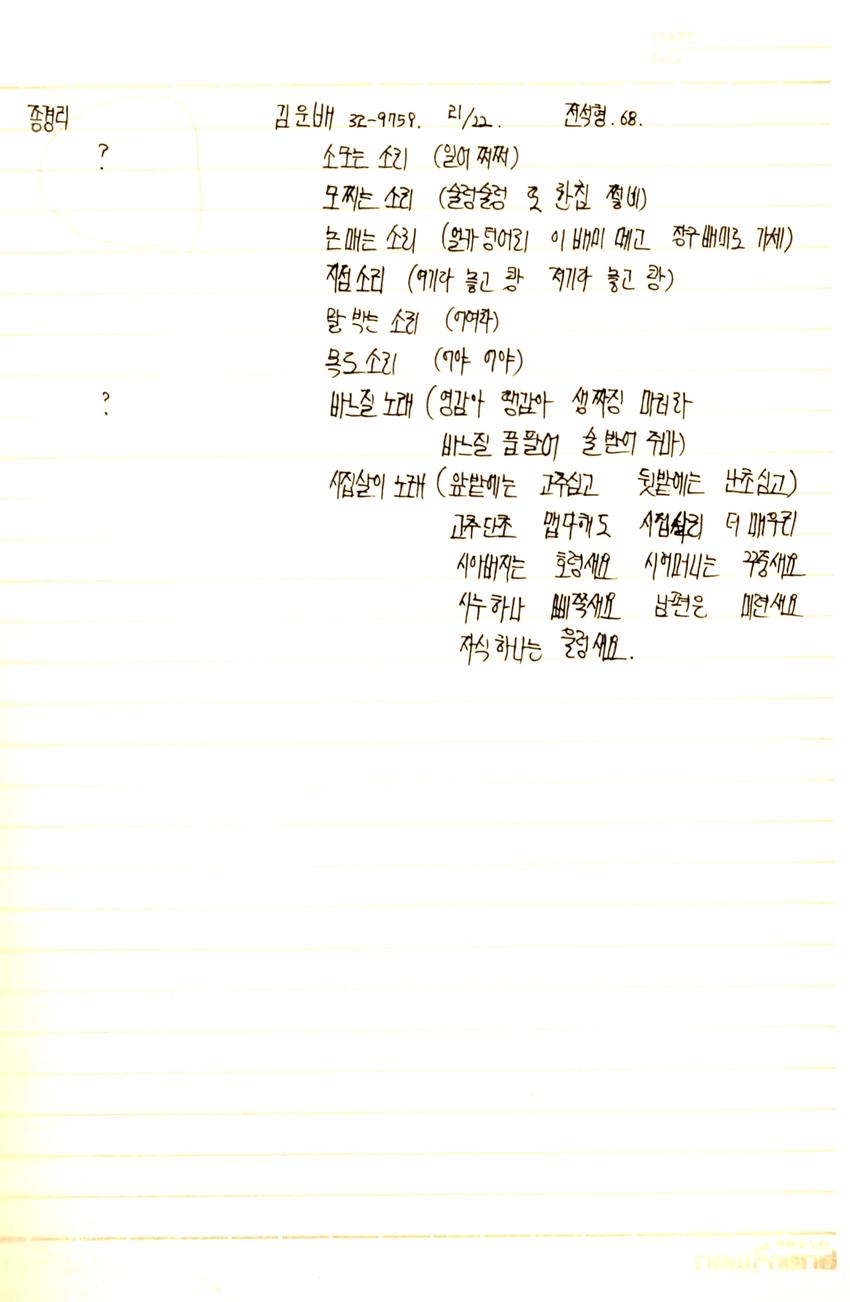 종경리 김운배 32-9759. 리/22. 전석형. 68.
? 소모는 소리 (일어 쩌쩌)
모찌는 소리 (술렁술렁 또 한침 쩔비)
논매는 소리 (얼카 덩어리 이 배미 메고 장구배미로 가세)
지점소리 (여기라 놓고 쾅 저기라 놓고 쾅)
말 박는 소리 (어여라)
목도 소리 (어야 어야)
? 바느질 노래 (영감아 땡감아 생짜징 마러라
바느질 품팔어 술 받어 주마)
시집살이 노래 (앞밭에는 고추심고 뒷밭에는 난초심고)
고추단초 맵다해도 시집살리 더 매우리
시아버지는 호령새요 시어머니는 꾸중새요
시누 하나 삐쭉새요 남편은 미련새요
자식 하나는 울렁새요.